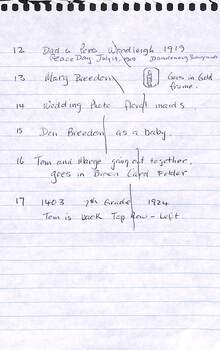 12 Dad & Pero Wondleigh 1919
Peace Day July 19, 1919
13 Mary Breeden Goes in Gold
frame.
14 Wedding Photo Floral maids
15 Den Breeden as a baby.
16 Tom and Marge going out together,
goes in Brown Card Folder
17 1403 7th Grade 1924
Tom is back Top Row - Left